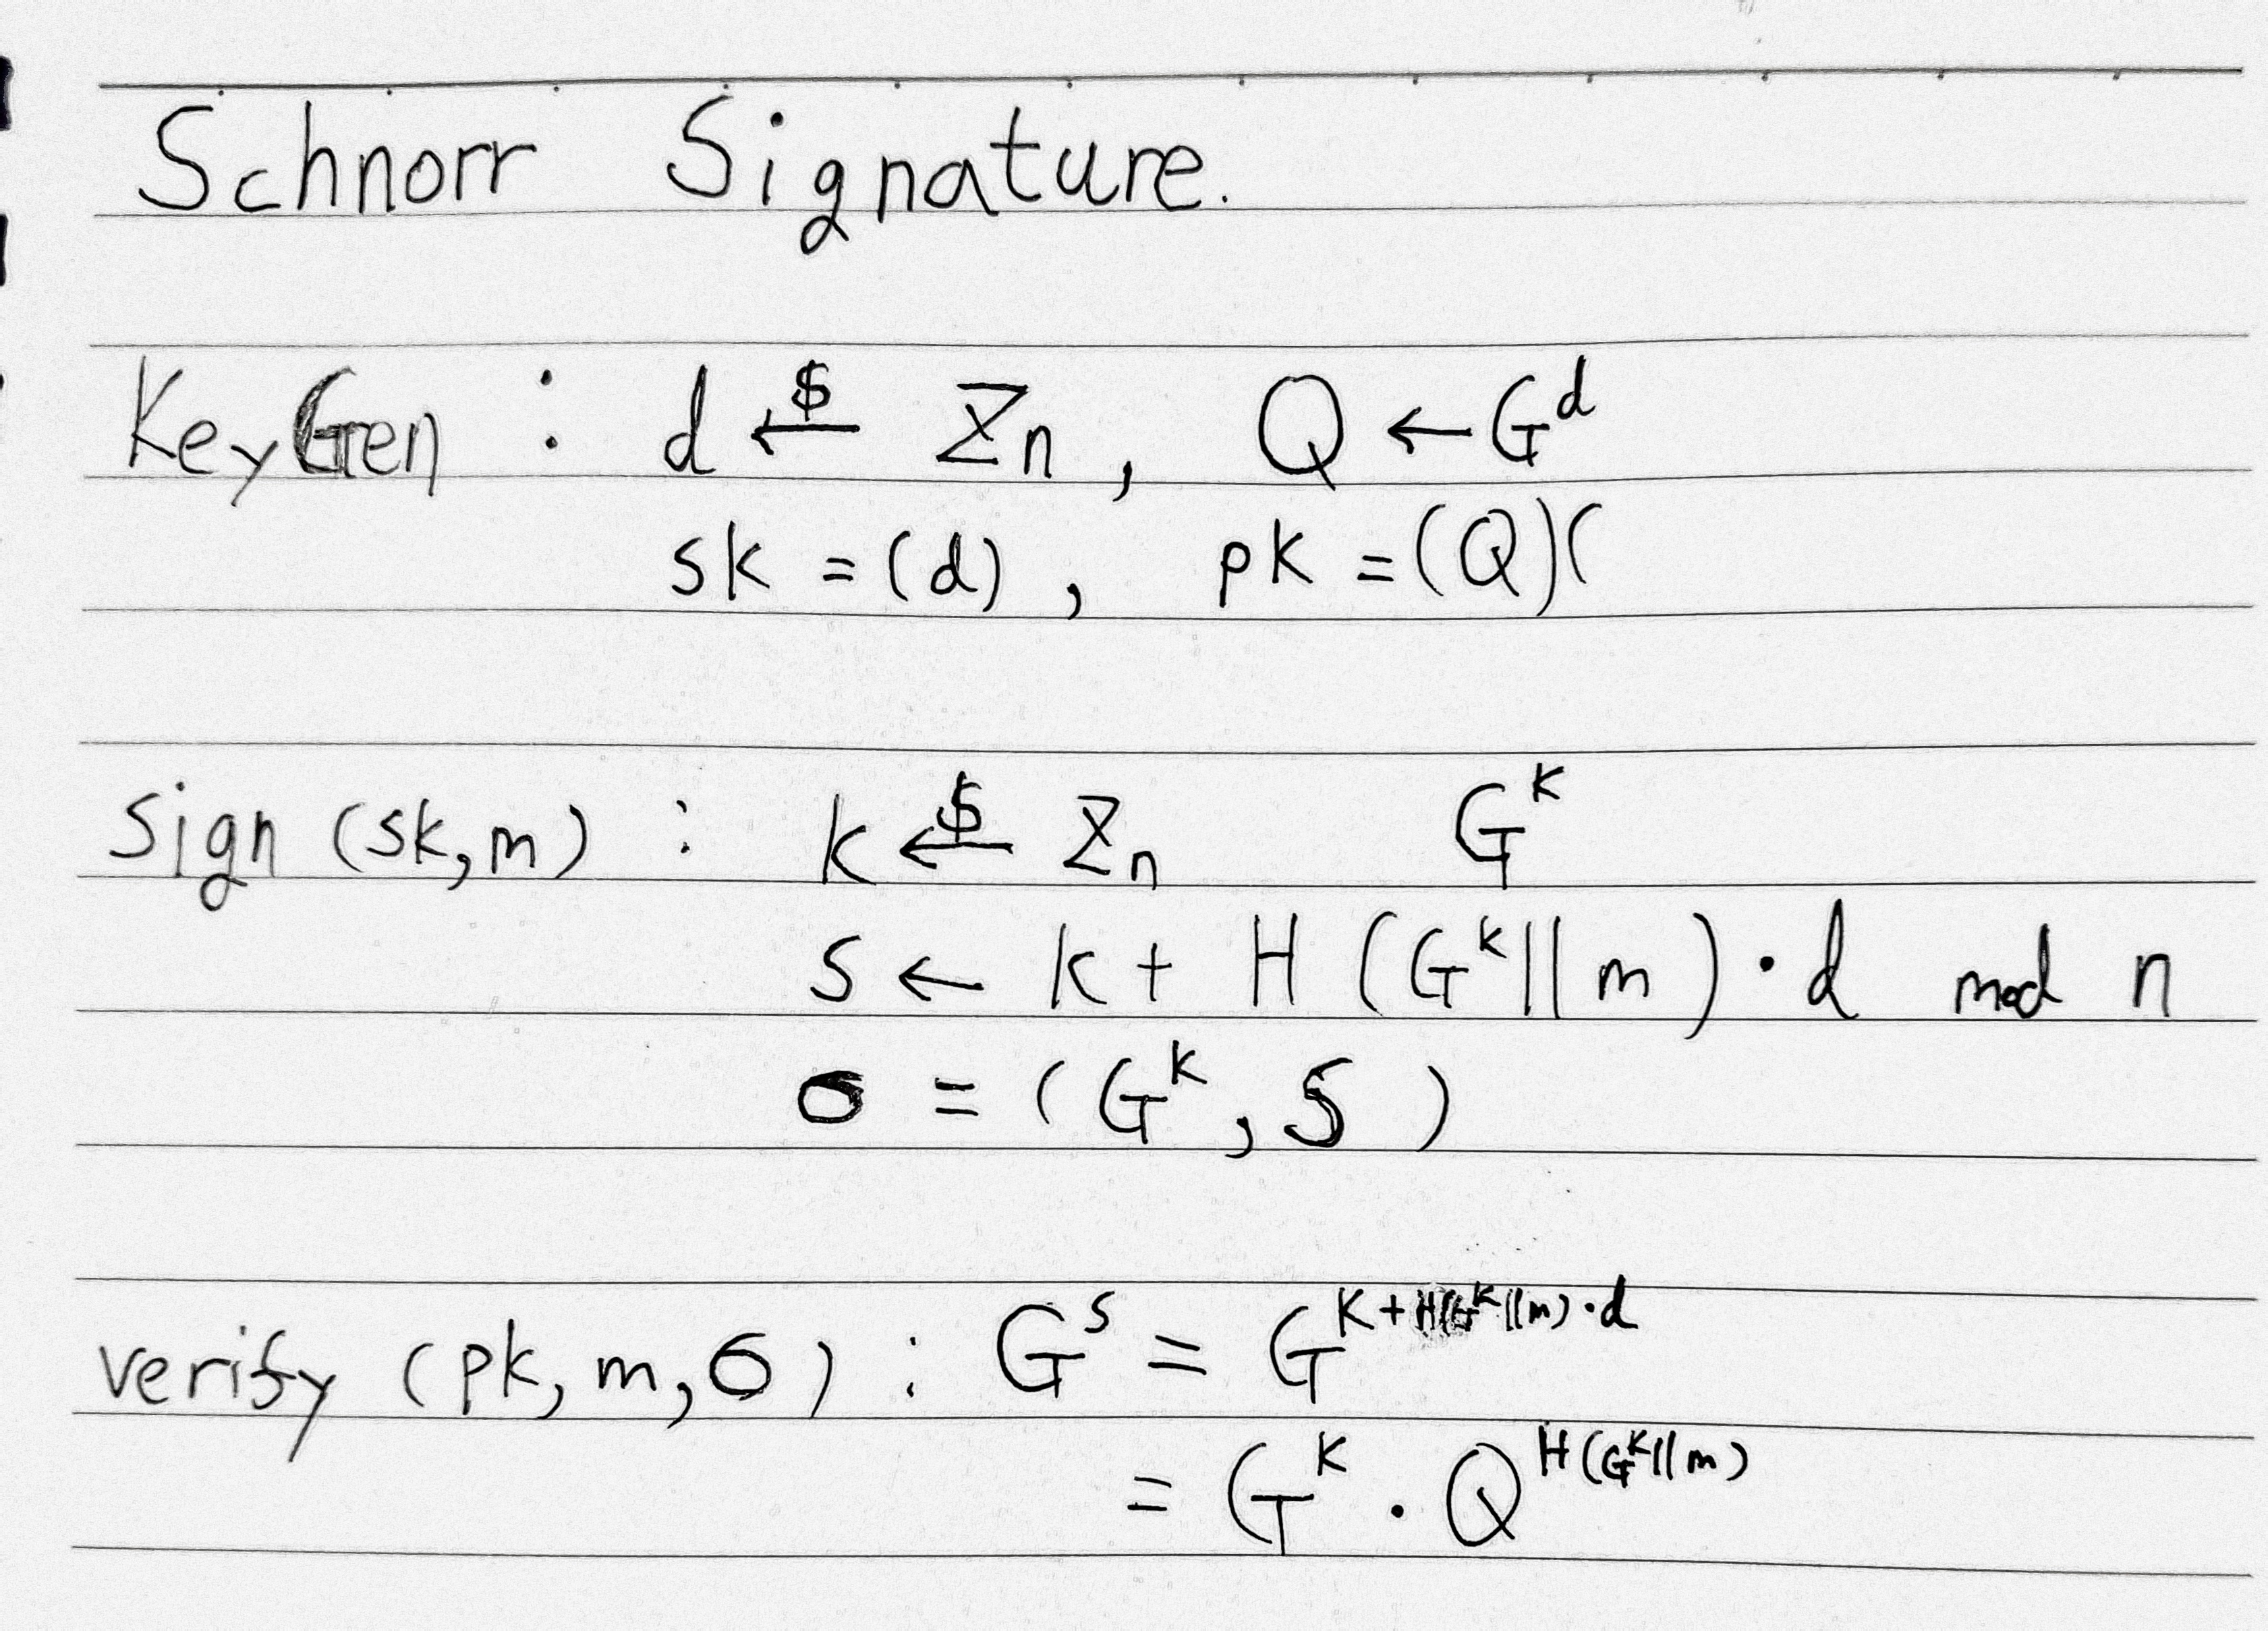 Schnorr Signature.
KeyGen : d ←$ Zn , Q ← G^d
sk = (d) , pk = (Q)(
Sign (sk,m) : k ←$ Zn G^k
S ← k + H (G^k || m) · d mod n
σ = (G^k, S)
verify (pk, m, σ) : G^s = G^k+H(G^k||m)·d
= G^k · Q^H(G^k||m)